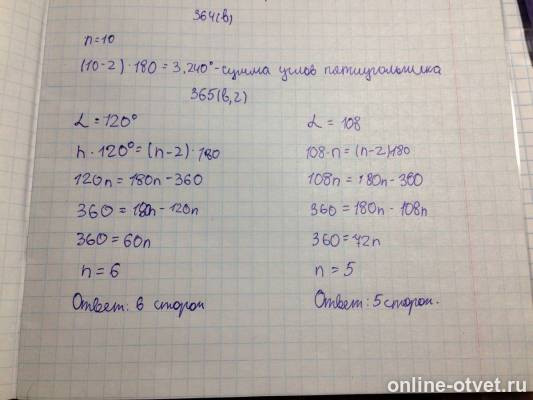 364(в)
n=10
(10-2)·180=3,240°-сумма углов пятиугольника
365(в,г)
α=120°
n·120°=(n-2)·180
120n=180n-360
360=180n-120n
360=60n
n=6
Ответ: 6 сторон
α=108
108·n=(n-2)180
108n=180n-360
360=180n-108n
360=72n
n=5
Ответ: 5 сторон.
online-otvet.ru